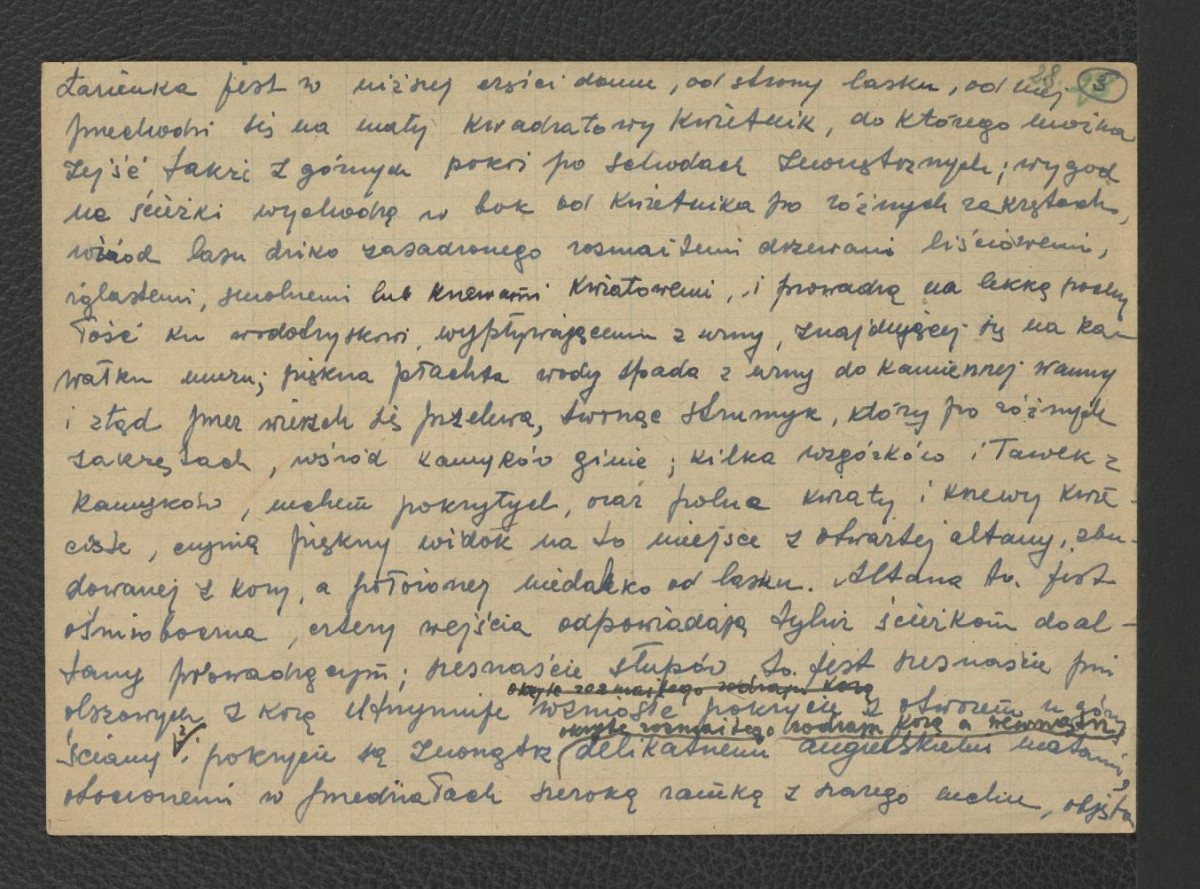 28. 3
Łazienka jest w niższej części domu, od strony lasku, od niej
przechodzi się na mały kwadratowy kwietnik, do którego można
zejść także z górnych pokoi po schodach zewnętrznych; wygod
ne ścieżki wychodzą w bok od kwietnika po różnych zakrętach,
wśród lasu dziko zasadzonego rozmaitemi drzewami liściowemi,
iglastemi, smolnemi lub krzewami kwiatowemi, i prowadzą na lekką pochy
łość ku wodotryskowi, wypływającemu z urny, znajdującej się na ka-
wałku muru; piękna płachta wody spada z urny do kamiennej wanny
i ztąd przez wierzch się przelewa, tworząc strumyk, który po różnych
zakrętach, wśród kamyków ginie; kilka wzgórków i ławek z
kamyków, mchem pokrytych, oraz polne kwiaty i krzewy kwie-
ciste, czynią piękny widok na to miejsce z otwartej altany, zbu-
dowanej z kory, a położonej niedaleko od lasku. Altana ta jest
ośmioboczna, cztery wejścia odpowiadają tyluż ścieżkom do al-
tany prowadzącym; szesnaście słupów to jest szesnaście pni
okryte rozmaitego rodzaju korą
olszowych z korą utrzymuje wzniosłe pokrycie z otworem u góry
okryte rozmaitego rodzaju korą a wewnątrz
ściany i pokrycie są zewnątrz delikatnemi angielskiemi matami,
otoczonemi w przedziałach szeroką ramką z szarego mchu, objęta